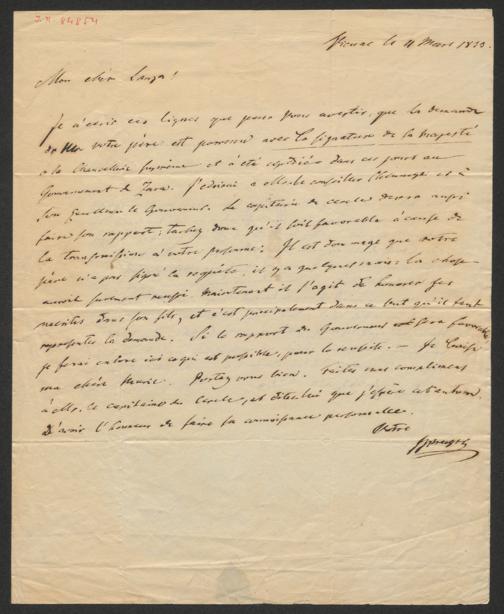 I.N 84854
Vienne le 11 Mars 1833.
Mon cher Lanza!
Je n'écris ces lignes que pour vous avertir, que la demande
de votre père est parvenue avec la signature de Sa Majesté
à la Chancellerie suprème et a été expédiée dans ces jours au
Gouvernement de Zara. J'écrirai à le conseiller et à
Son Excellence le Gouverneur. Le capitaine de cercle devra aussi
faire son rapport; tachez donc qu'il soit favorable à cause de
la transmission à votre personne. Il est dommage que votre
père n'a pas signé la requête, il y a quelques ans: la chose
auroit surement reussi. Maintenant il s'agit de honorer ses
merites dans son fils, et c'est principalement dans ce but qu'il faut
representer la demande. Si le rapport du Gouvernement sera favorable
je ferai encore ici ce qui est possible, pour la reussite. — Je
ma chère Marie. Portez vous bien. Faites mes compliments
à Mr. le capitaine du Cercle, et dites lui que j'espère cet automne
d'avoir l'honneur de faire sa connoissance personnelle.
Votre